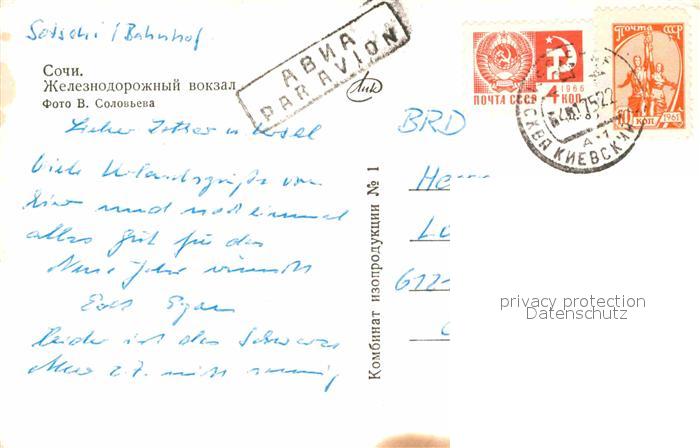 Sotschi / Bahnhof
Сочи.
Железнодорожный вокзал
Фото В. Соловьева
АВИА
PAR AVION
ПОЧТА СССР
1966
4 КОП
Почта СССР
10 КОП
1961
МОСКВА КИЕВСКАЯ
Lieber u. Ursel
Viele Urlaubsgrüße von
hier und noch einmal
alles gut für das
Neue Jahr wünscht
Euer Egon
Leider ist das Schwarze
Meer z.Z. nicht
Комбинат изопродукции № 1
BRD
He
Lu
612
privacy protection
Datenschutz